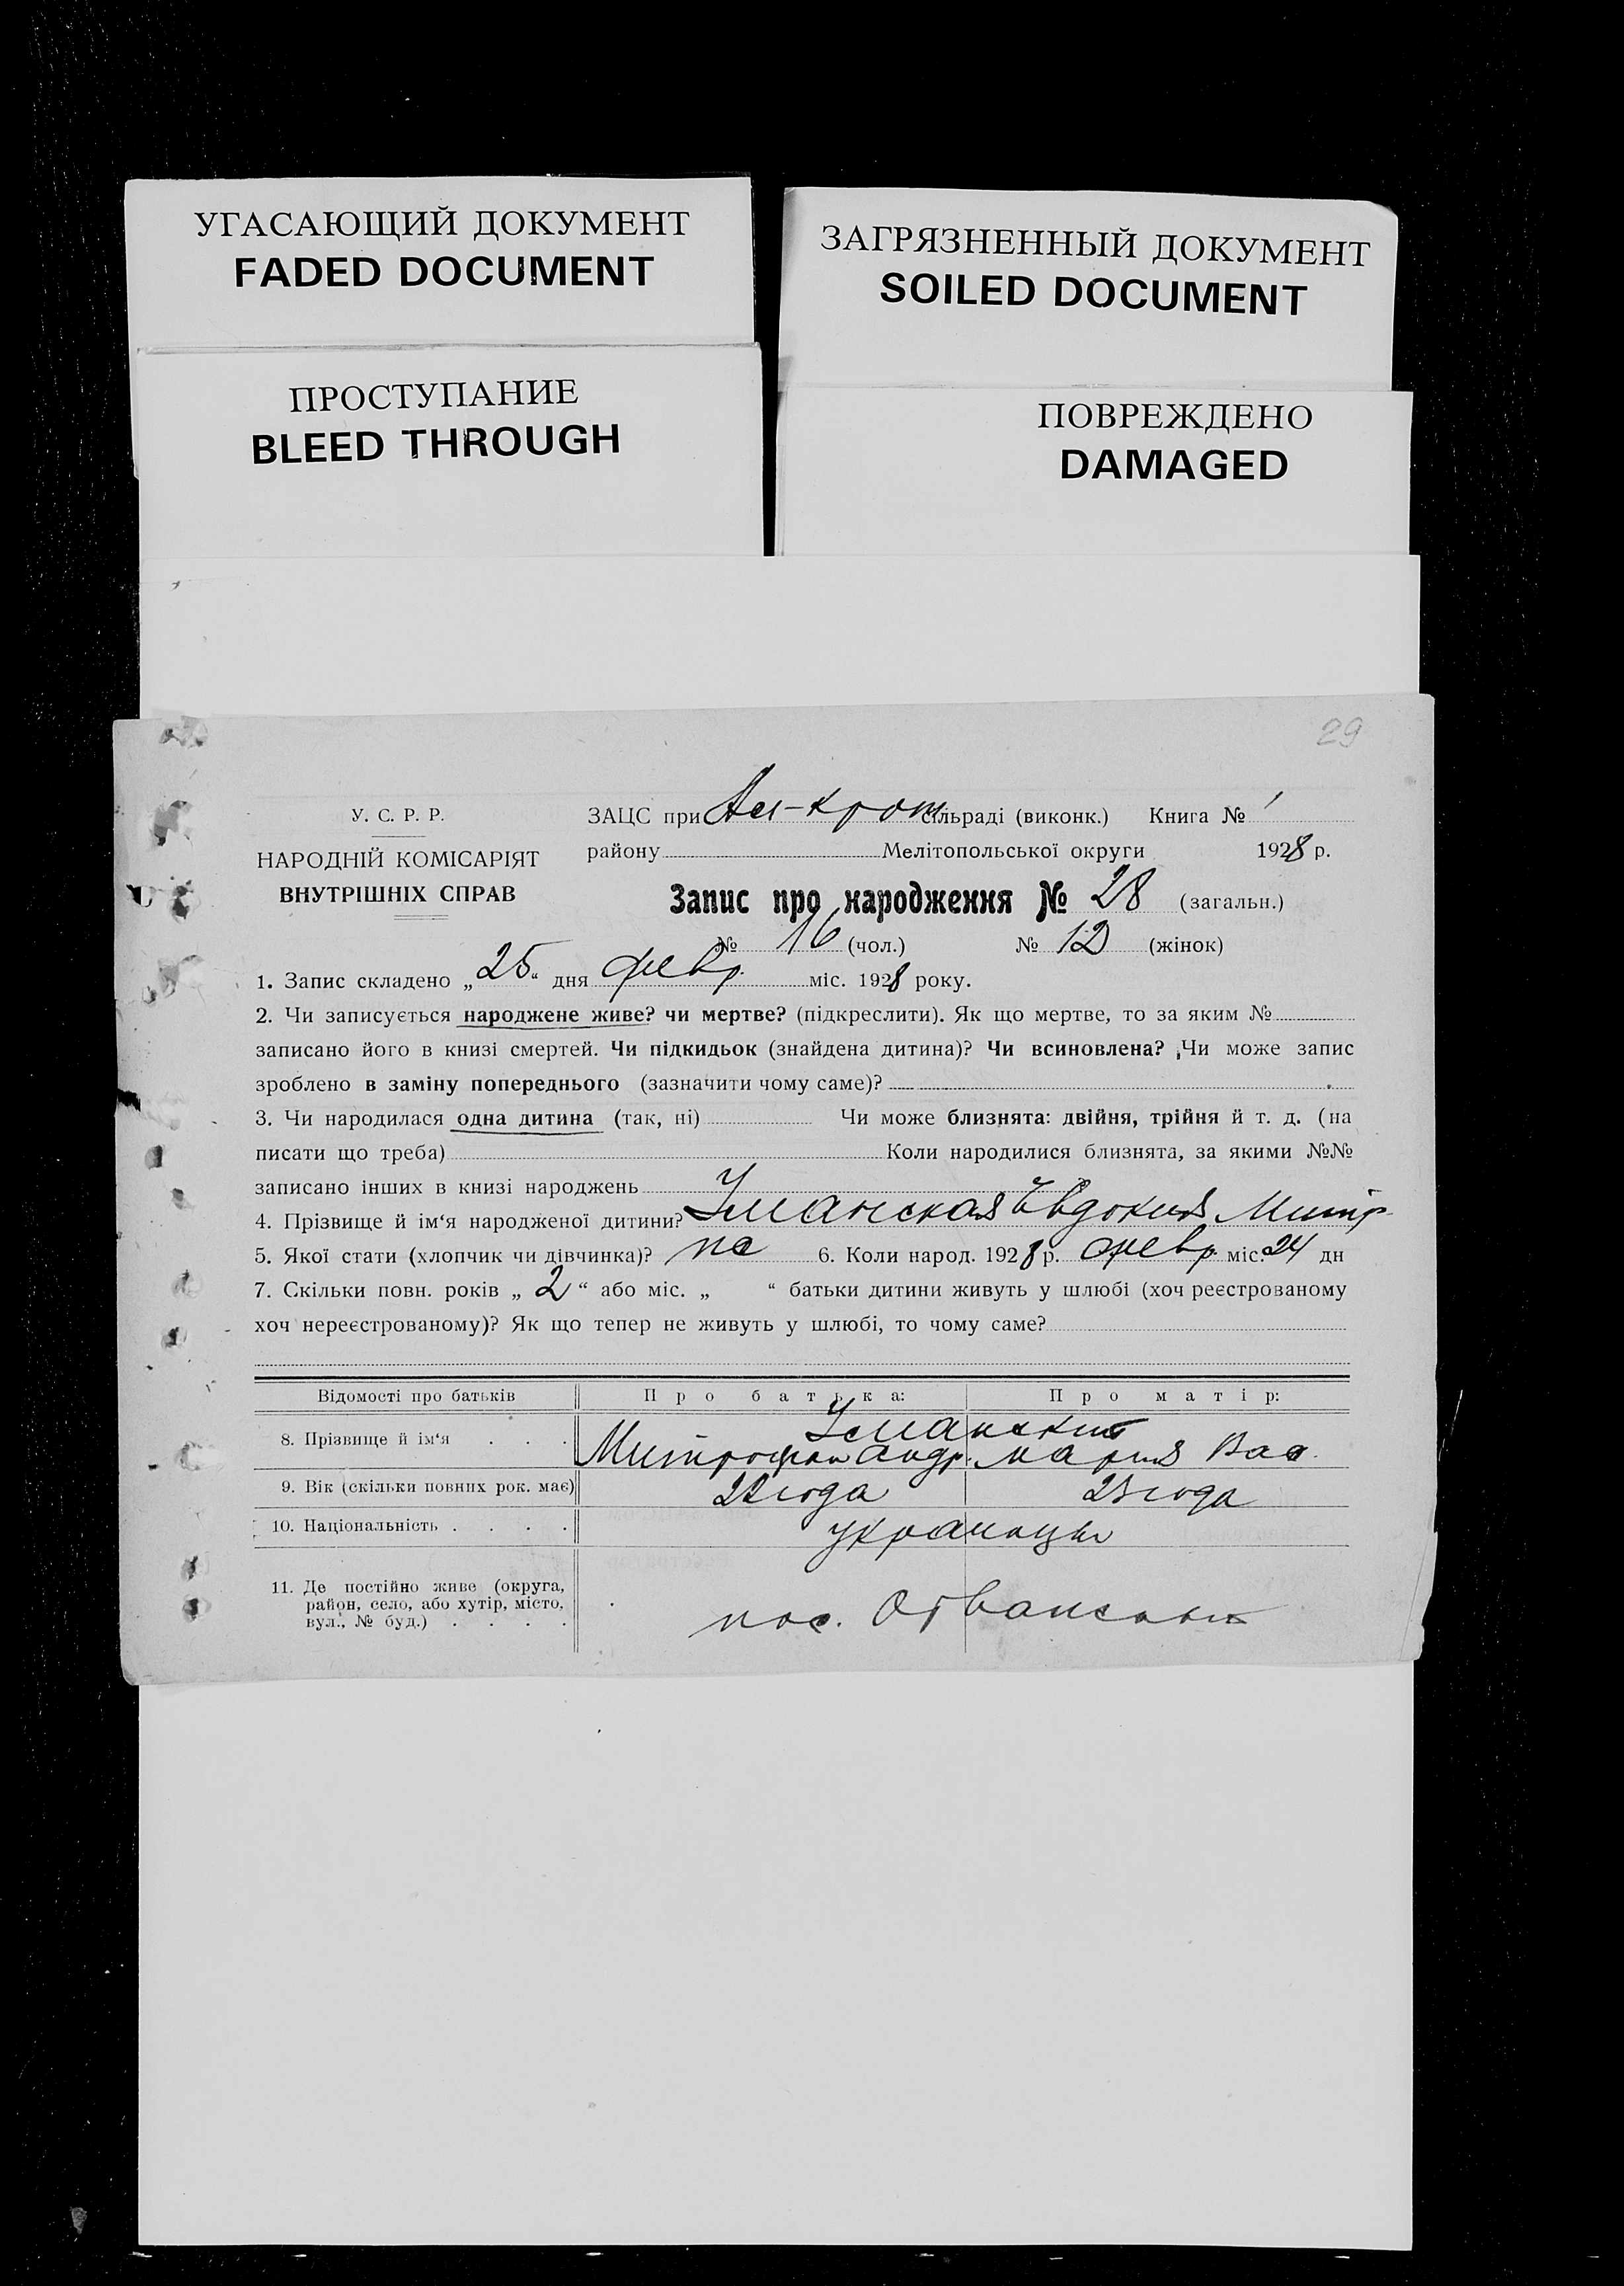 УГАСАЮЩИЙ ДОКУМЕНТ
FADED DOCUMENT
ЗАГРЯЗНЕННЫЙ ДОКУМЕНТ
SOILED DOCUMENT
ПРОСТУПАНИЕ
BLEED THROUGH
ПОВРЕЖДЕНО
DAMAGED
29
У. С. Р. Р.
НАРОДНІЙ КОМІСАРІЯТ
ВНУТРІШНІХ СПРАВ
ЗАЦС при сільраді (виконк.) Книга № 1
району Мелітопольської округи 1928 р.
Запис про народження № 28 (загальн.)
№ 16 (чол.) № 12 (жінок)
1. Запис складено „25“ дня февр. міс. 1928 року.
2. Чи записується народжене живе? чи мертве? (підкреслити). Як що мертве, то за яким №
записано його в книзі смертей. Чи підкидьок (знайдена дитина)? Чи всиновлена? Чи може запис
зроблено в заміну попереднього (зазначити чому саме)?
3. Чи народилася одна дитина (так, ні) Чи може близнята: двійня, трійня й т. д. (на
писати що треба) Коли народилися близнята, за якими №№
записано інших в книзі народжень
4. Прізвище й ім‘я народженої дитини? Уманская Евдокия Митр
5. Якої стати (хлопчик чи дівчинка)? 6. Коли народ. 1928 р. февр. міс. 24 дн
7. Скільки повн. років „ 2 “ або міс. „ “ батьки дитини живуть у шлюбі (хоч реєстрованому
хоч нереєстрованому)? Як що тепер не живуть у шлюбі, то чому саме?
Відомості про батьків Про батька: Про матір:
8. Прізвище й ім‘я . . . Уманские
Митрофан Андр. Мария Вас.
9. Вік (скільки повних рок. має) 22 года 23 года
10. Національність . . . . украинцы
11. Де постійно живе (округа,
район, село, або хутір, місто,
вул., № буд.) . . . . пос.